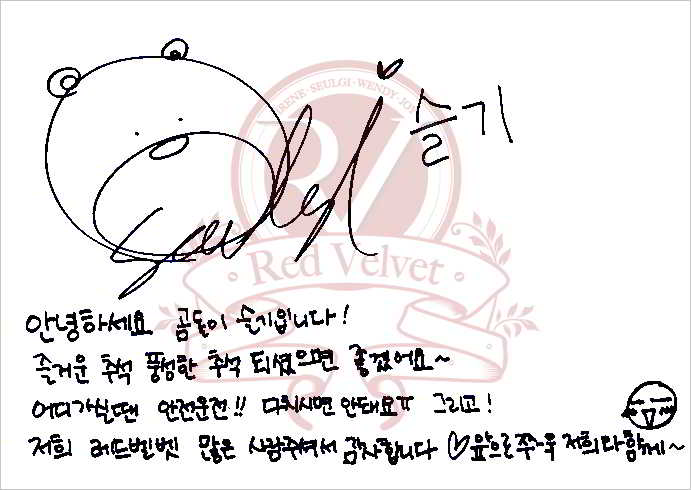 IRENE · SEULGI · WENDY · JOY
RV
Seulgi
슬기
· Red Velvet ·
안녕하세요 곰돌이 슬기입니다!
즐거운 추석 풍성한 추석 되셨으면 좋겠어요~
어디가실땐 안전운전!! 다치시면 안돼요ㅠ 그리고!
저희 레드벨벳 많은 사랑주셔서 감사합니다 ♡앞으로쭈-욱 저희랑함께~